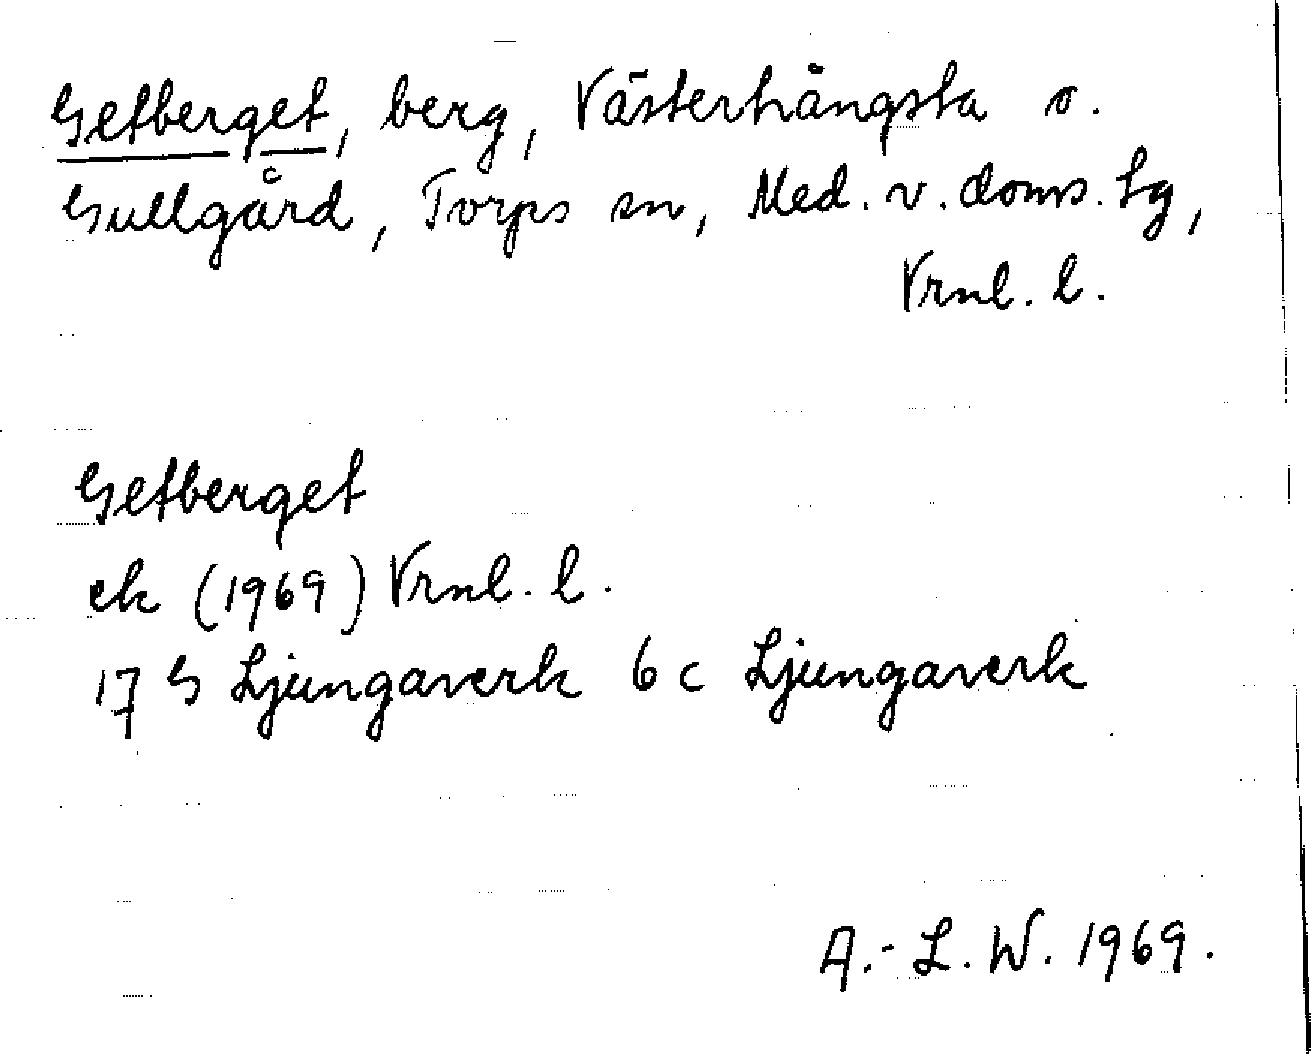 Getberget, berg, Västerhångsta o.
Gullgård, Torps sn, Med. v. doms. tg,
Vrnl. l.
Getberget
ek (1969) Vrnl. l.
17 G Ljungaverk 6 c Ljungaverk
A.-L. W. 1969.